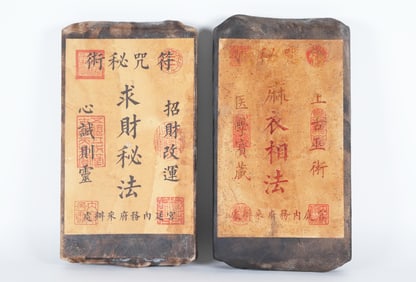 符咒秘術
招財改運
求財秘法
心誠則靈
宮廷內務府采辦處
上古巫術
麻衣相法
医學寶藏
宮廷內務府采辦處